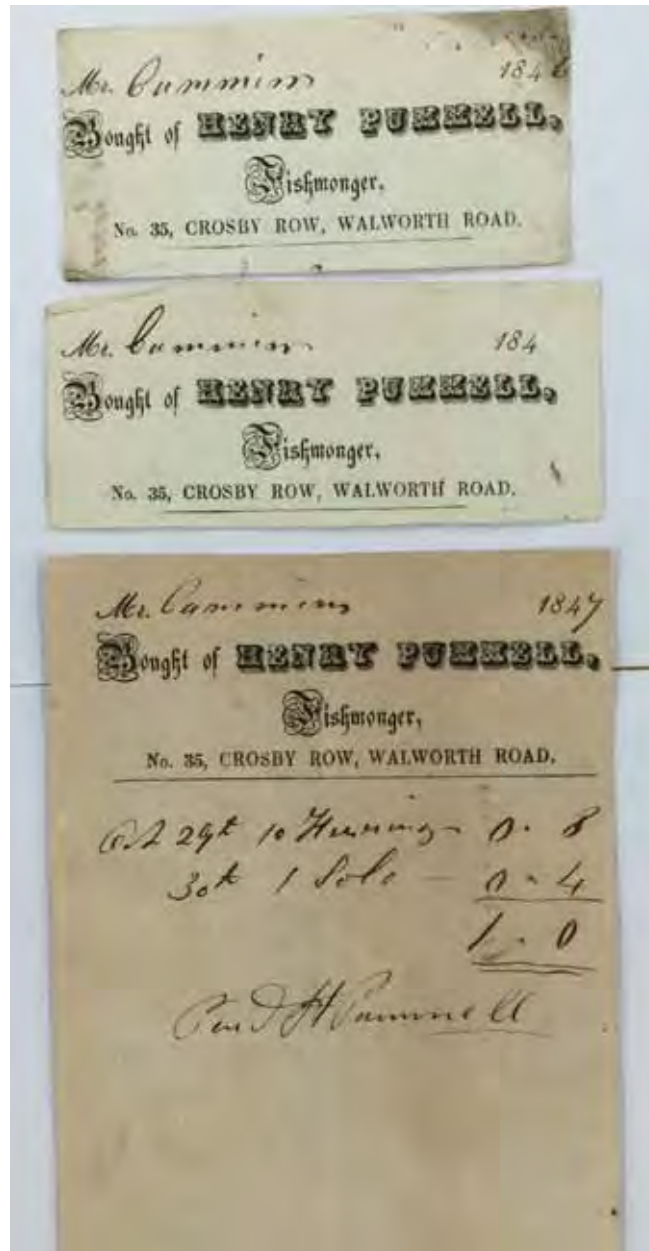 Mr. Cummins 1846
Bought of HENRY PUMMELL,
Fishmonger,
No. 35, CROSBY ROW, WALWORTH ROAD.
Mr. Cummins 184
Bought of HENRY PUMMELL,
Fishmonger,
No. 35, CROSBY ROW, WALWORTH ROAD.
Mr. Cummins 1847
Bought of HENRY PUMMELL,
Fishmonger,
No. 35, CROSBY ROW, WALWORTH ROAD.
Oct 29th 10 Herrings 0 - 8
30th 1 Sole — 0 - 4
1 - 0
H Pummell